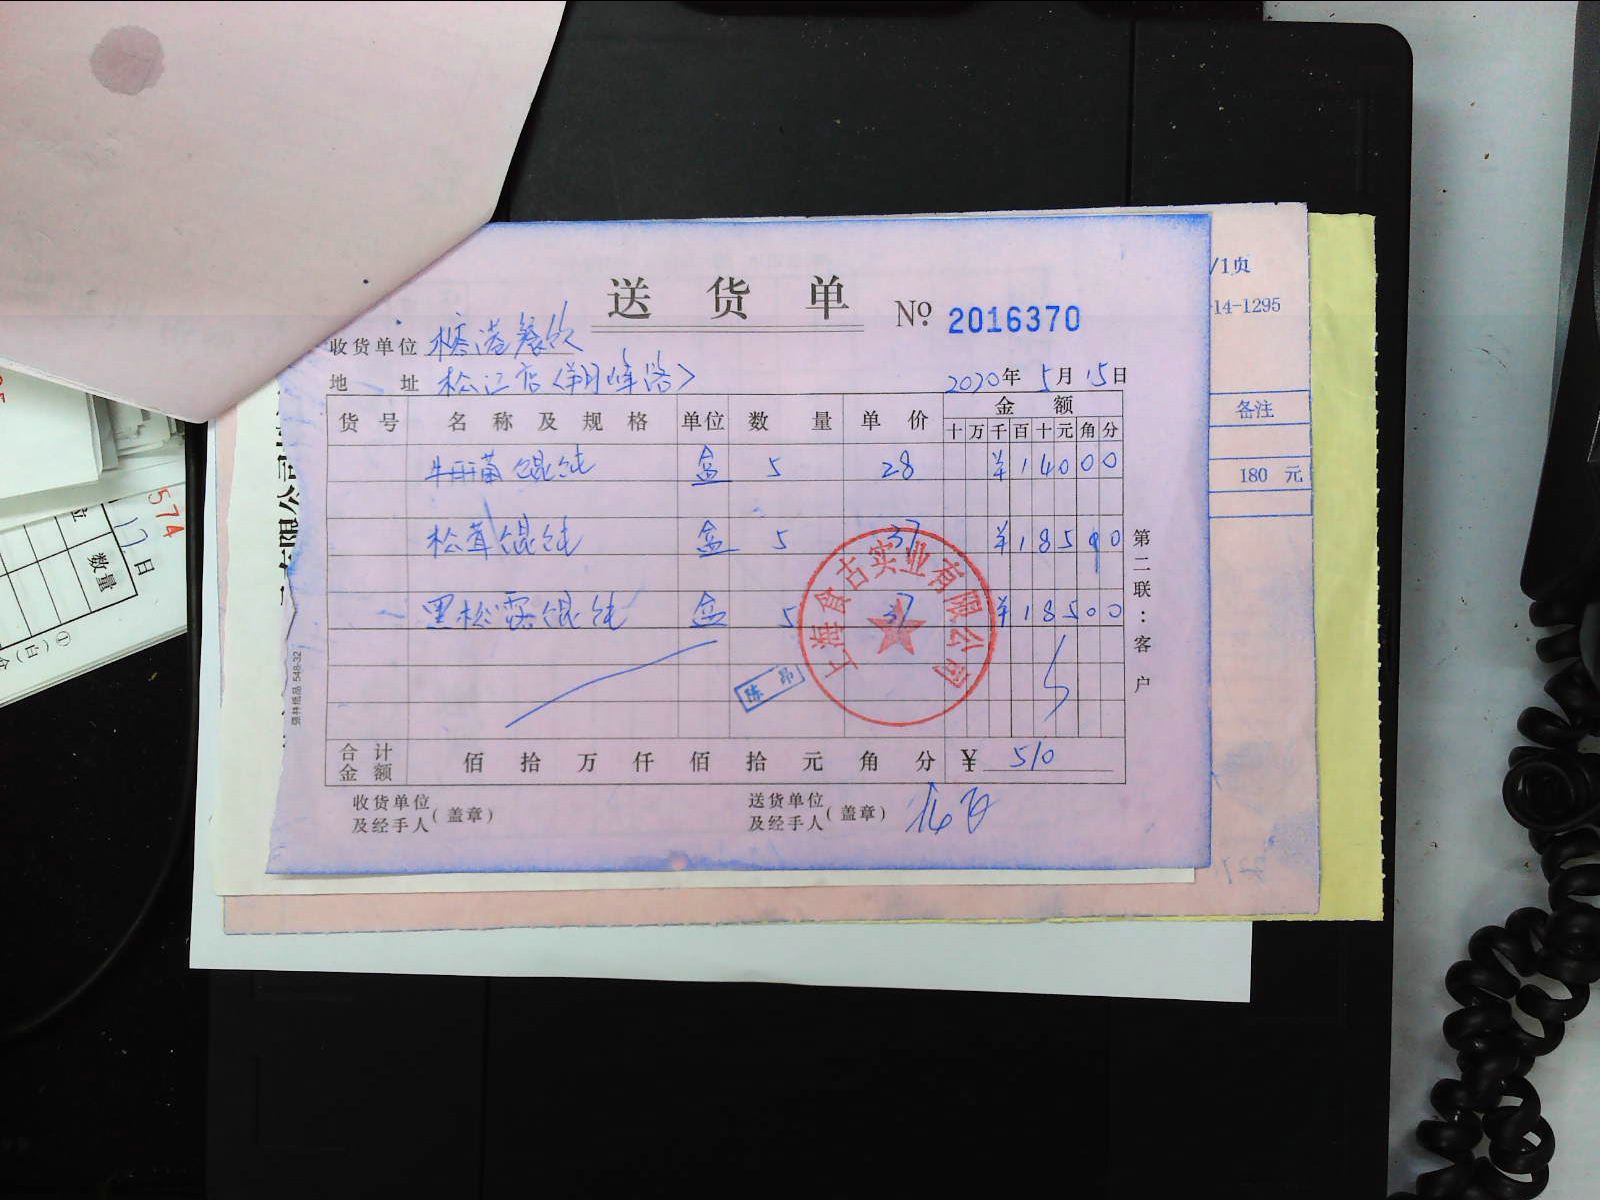 送货单 No. 2016370
收货单位 榕港餐饮
地址 松江店(翔峰路) 2020年5月15日
货号 名称及规格 单位 数量 单价 金额
十万千百十元角分
馄饨 盒 5 28 ¥14000
松茸馄饨 盒 5 37 ¥18500
黑松露馄饨 盒 5 37 ¥18500
上海食古实业有限公司
陈
合计金额 佰拾万仟佰拾元角分 ¥510
收货单位及经手人(盖章) 送货单位及经手人(盖章)
第二联:客户
548-32
/1页
14-1295
备注
180 元
限公司
574
17日
数量
①(白